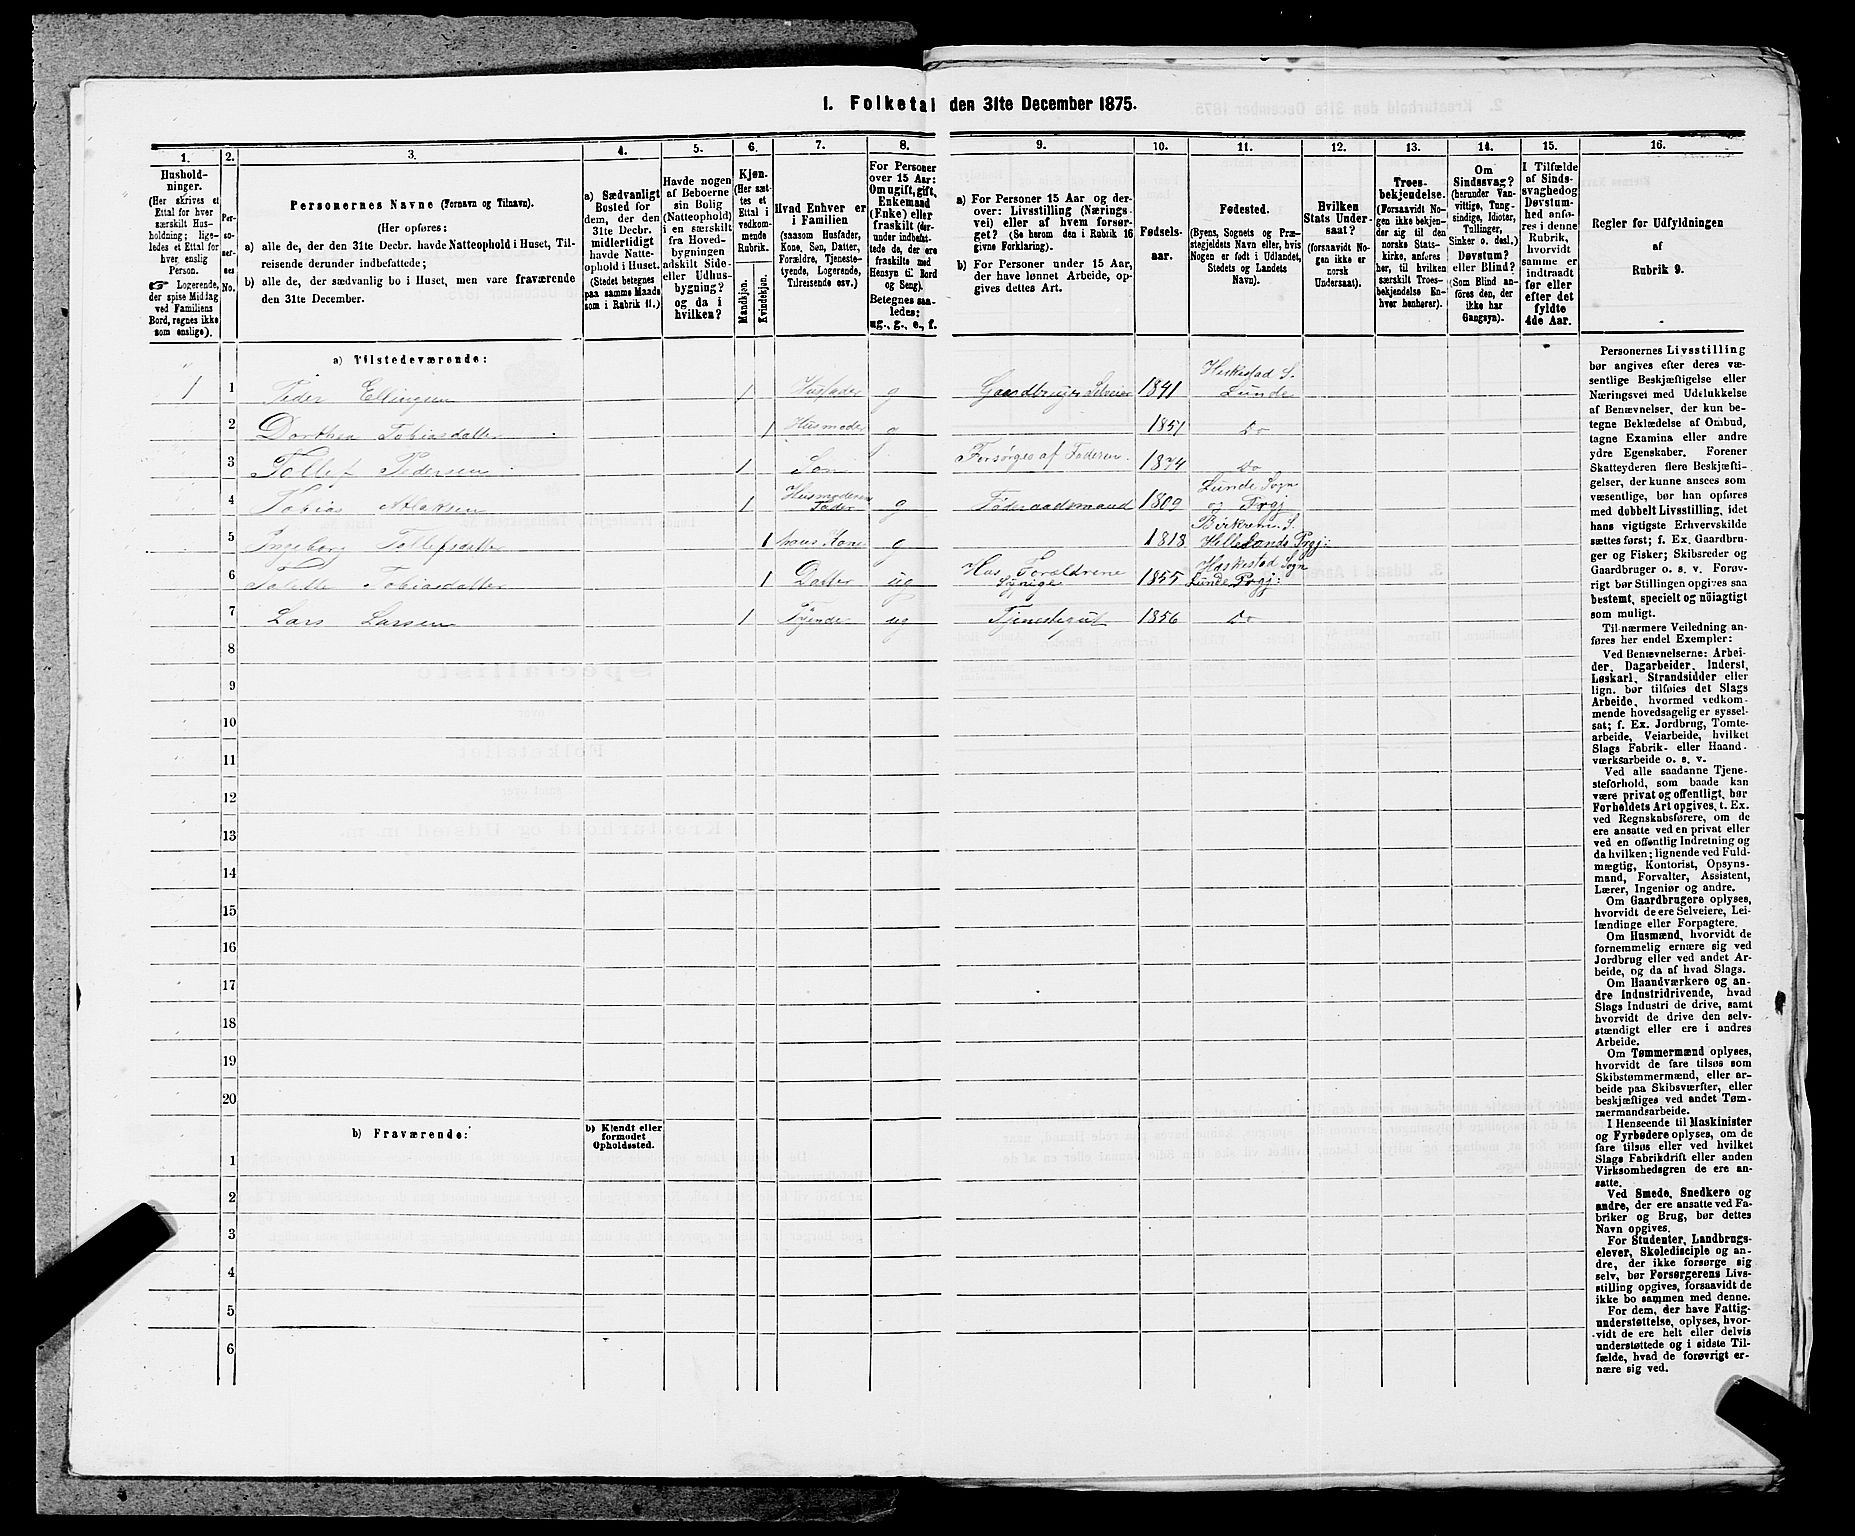 1. Folketal den 31te December 1875.
1. 2. 3. 4. 5. 6. 7. 8. 9. 10. 11. 12. 13. 14. 15. 16.
Hushold-
ninger.
(Her skrives et
Ettal for hver
særskilt Hus-
holdning; lige-
ledes et Ettal for
hver enslig
Person.
☞ Logerende,
der spise Middag
ved Familiens
Bord, regnes ikke
som enslige).
Per-
sono-
ner-
nes
No.
Personernes Navne (Fornavn og Tilnavn).
(Her opføres:
a) alle de, der den 31te Decbr. havde Natteophold i Huset, Til-
reisende derunder indbefattede;
b) alle de, der sædvanlig bo i Huset, men vare fraværende
den 31te December.
a) Sædvanligt
Bosted for
dem, der den
31te Decbr.
midlertidigt
havde Natte-
ophold i Huset.
(Stedet betegnes
paa samme Maade
som i Rubrik 11.)
Havde nogen
af Beboerne
sin Bolig
(Natteophold)
i en særskilt
fra Hoved-
bygningen
adskilt Side-
eller Udhus-
bygning?
og da i
hvilken?
Kjøn.
(Her sæt-
tes et
Ettal i
vedkom-
mende
Rubrik.)
Mandkjøn.
Kvindekjøn.
Hvad Enhver er
i Familien
(saasom Husfader,
Kone, Søn, Datter,
Forældre, Tjeneste-
tyende, Logerende,
Tilreisende osv.)
For Personer
over 15 Aar:
Om ugift, gift,
Enkemand
(Enke) eller
fraskilt (der-
under indbefat-
tede de, der ere
fraskilte med
Hensyn til Bord
og Seng).
Betegnes saa-
ledes:
ug., g., e., f.
a) For Personer 15 Aar og der-
over: Livsstilling (Nærings-
vei) eller af hvem forsør-
get? (Se herom den i Rubrik 16
givne Forklaring).
b) For Personer under 15 Aar,
der have lønnet Arbeide, op-
gives dettes Art.
Fødsels-
aar.
Fødested.
(Byens, Sognets og Præ-
stegjeldets Navn eller, hvis
Nogen er født i Udlandet,
Stedets og Landets
Navn).
Hvilken
Stats Under-
saat?
(forsaavidt No-
gen ikke er
norsk
Undersaat).
Troes-
bekjendelse.
(Forsaavidt No-
gen ikke bekjen-
der sig til den
norske Stats-
kirke, anføres
her, til hvilken
særskilt Troes-
bekjendelse En-
hver henhører).
Om
Sindssvag?
(herunder Van-
vittige, Tung-
sindige, Idioter,
Tullinger,
Sinker o. desl.)
Døvstum?
eller Blind?
(Som Blind an-
føres den, der
ikke har
Gangsyn).
I Tilfælde
af Sinds-
svaghed og
Døvstum-
hed anfø-
res i denne
Rubrik,
hvorvidt
samme er
indtraadt
før eller
efter det
fyldte
4de Aar.
Regler for Udfyldningen
af
Rubrik 9.
a) Tilstedeværende:
1 1 Peder Ellingsen 1 Husfader g Gaardbruger Selveier 1841 Heskestad S. Lunde
2 Dorthea Tobiasdatter 1 Husmoder g 1851 Do
3 Tollef Pedersen 1 Søn Forsørges af Faderen 1874 Do
4 Tobias Aslaksen 1 Husmoderens Fader g Føderaadsmand 1809 Lunde Sogn og Prgj
5 Ingeborg Tollefsdatter 1 hans Kone g 1818 Birkrem S. Hellelands Prgj:
6 Tobiasdatter 1 Datter ug Hos Forældrene 1855 Heskestad Sogn Lunde Prgj:
7 Lars Larsen 1 Tyende ug Tjenestegut 1856 Do
8
9
10
11
12
13
14
15
16
17
18
19
20
b) Fraværende:
b) Kjendt eller
formodet
Opholdssted.
1
2
3
4
5
6
Personernes Livsstilling
bør angives efter deres væ-
sentlige Beskjæftigelse eller
Næringsvei med Udelukkelse
af Benævnelser, der kun be-
tegne Beklædelse af Ombud,
tagne Examina eller andre
ydre Egenskaber. Forener
Skatteyderen flere Beskjæfti-
gelser, der kunne ansees som
væsentlige, bør han opføres
med dobbelt Livsstilling, idet
hans vigtigste Erhvervskilde
sættes først; f. Ex. Gaardbru-
ger og Fisker; Skibsreder og
Gaardbruger o. s. v. Forøv-
rigt bør Stillingen opgives saa
bestemt, specielt og nöiagtigt
som muligt.
Til nærmere Veiledning an-
føres her endel Exempler:
Ved Benævnelserne: Arbei-
der, Dagarbeider, Inderst,
Løskarl, Strandsidder eller
lign. bør tilføies det Slags
Arbeide, hvormed vedkom-
mende hovedsagelig er syssel-
sat; f. Ex. Jordbrug, Tomte-
arbeide, Veiarbeide, hvilket
Slags Fabrik- eller Haand-
værksarbeide o. s. v.
Ved alle saadanne Tjene-
steforhold, som baade kan
være privat og offentligt, bør
Forholdets Art opgives, t. Ex.
ved Regnskabsførere, om de
ere ansatte ved en privat eller
ved en offentlig Indretning og
da hvilken; lignende ved Fuld-
mægtig, Kontorist, Opsyns-
mand, Forvalter, Assistent,
Lærer, Ingeniør og andre.
Om Gaardbrugere oplyses,
hvorvidt de ere Selveiere, Lei-
lændinge eller Forpagtere.
Om Husmænd, hvorvidt de
fornemmelig ernære sig ved
Jordbrug eller ved andet Ar-
beide, og da af hvad Slags.
Om Haandværkere og an-
dre Industridrivende, hvad
Slags Industri de drive, samt
hvorvidt de drive den selv-
stændigt eller ere i andres
Arbeide.
Om Tømmermænd oplyses,
hvorvidt de fare tilsøs som
Skibstømmermænd, eller ar-
beide paa Skibsværfter, eller
beskjæftiges ved andet Tøm-
mermandsarbeide.
I Henseende til Maskinister
og Fyrbødere oplyses, om de
fare tilsøs eller ved hvilket
Slags Fabrikdrift eller anden
Virksomhedsgren de ere an-
satte.
Ved Smede, Snedkere og
andre, der ere ansatte ved Fa-
briker og Brug, bør dettes
Navn opgives.
For Studenter, Landbrugs-
elever, Skoledisciple og an-
dre, der ikke forsørge sig
selv, bør Forsørgerens Livs-
stilling opgives, forsaavidt de
ikke bo sammen med denne.
For dem, der have Fattig-
understøttelse, oplyses, hvor-
vidt de ere helt eller delvis
understøttede og i sidste Til-
fælde, hvad de forøvrigt er-
nære sig ved.